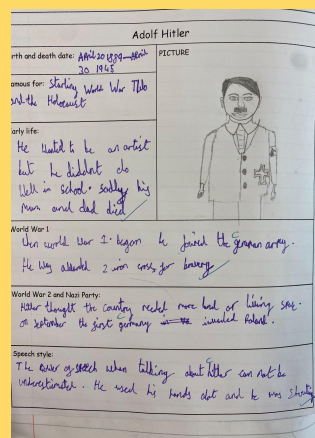 Adolf Hitler
rth and death date: April 20 1889-April
30 1945
PICTURE
amous for: Starting World War Two
and the Holocaust
arly life:
He wanted to be an artist
but he diddnt do
well in school. sadly his
mum and dad died
World War 1
When world War 1. began he joined the german army.
He was awarded 2 iron cross for bravery
World War 2 and Nazi Party:
Hitler thought the country needed more land or living space.
on september the first germany invaded Poland.
Speech style:
The Power of speech when talking about hitler can not be
underestimated. He used his hands alot and he was Shouting